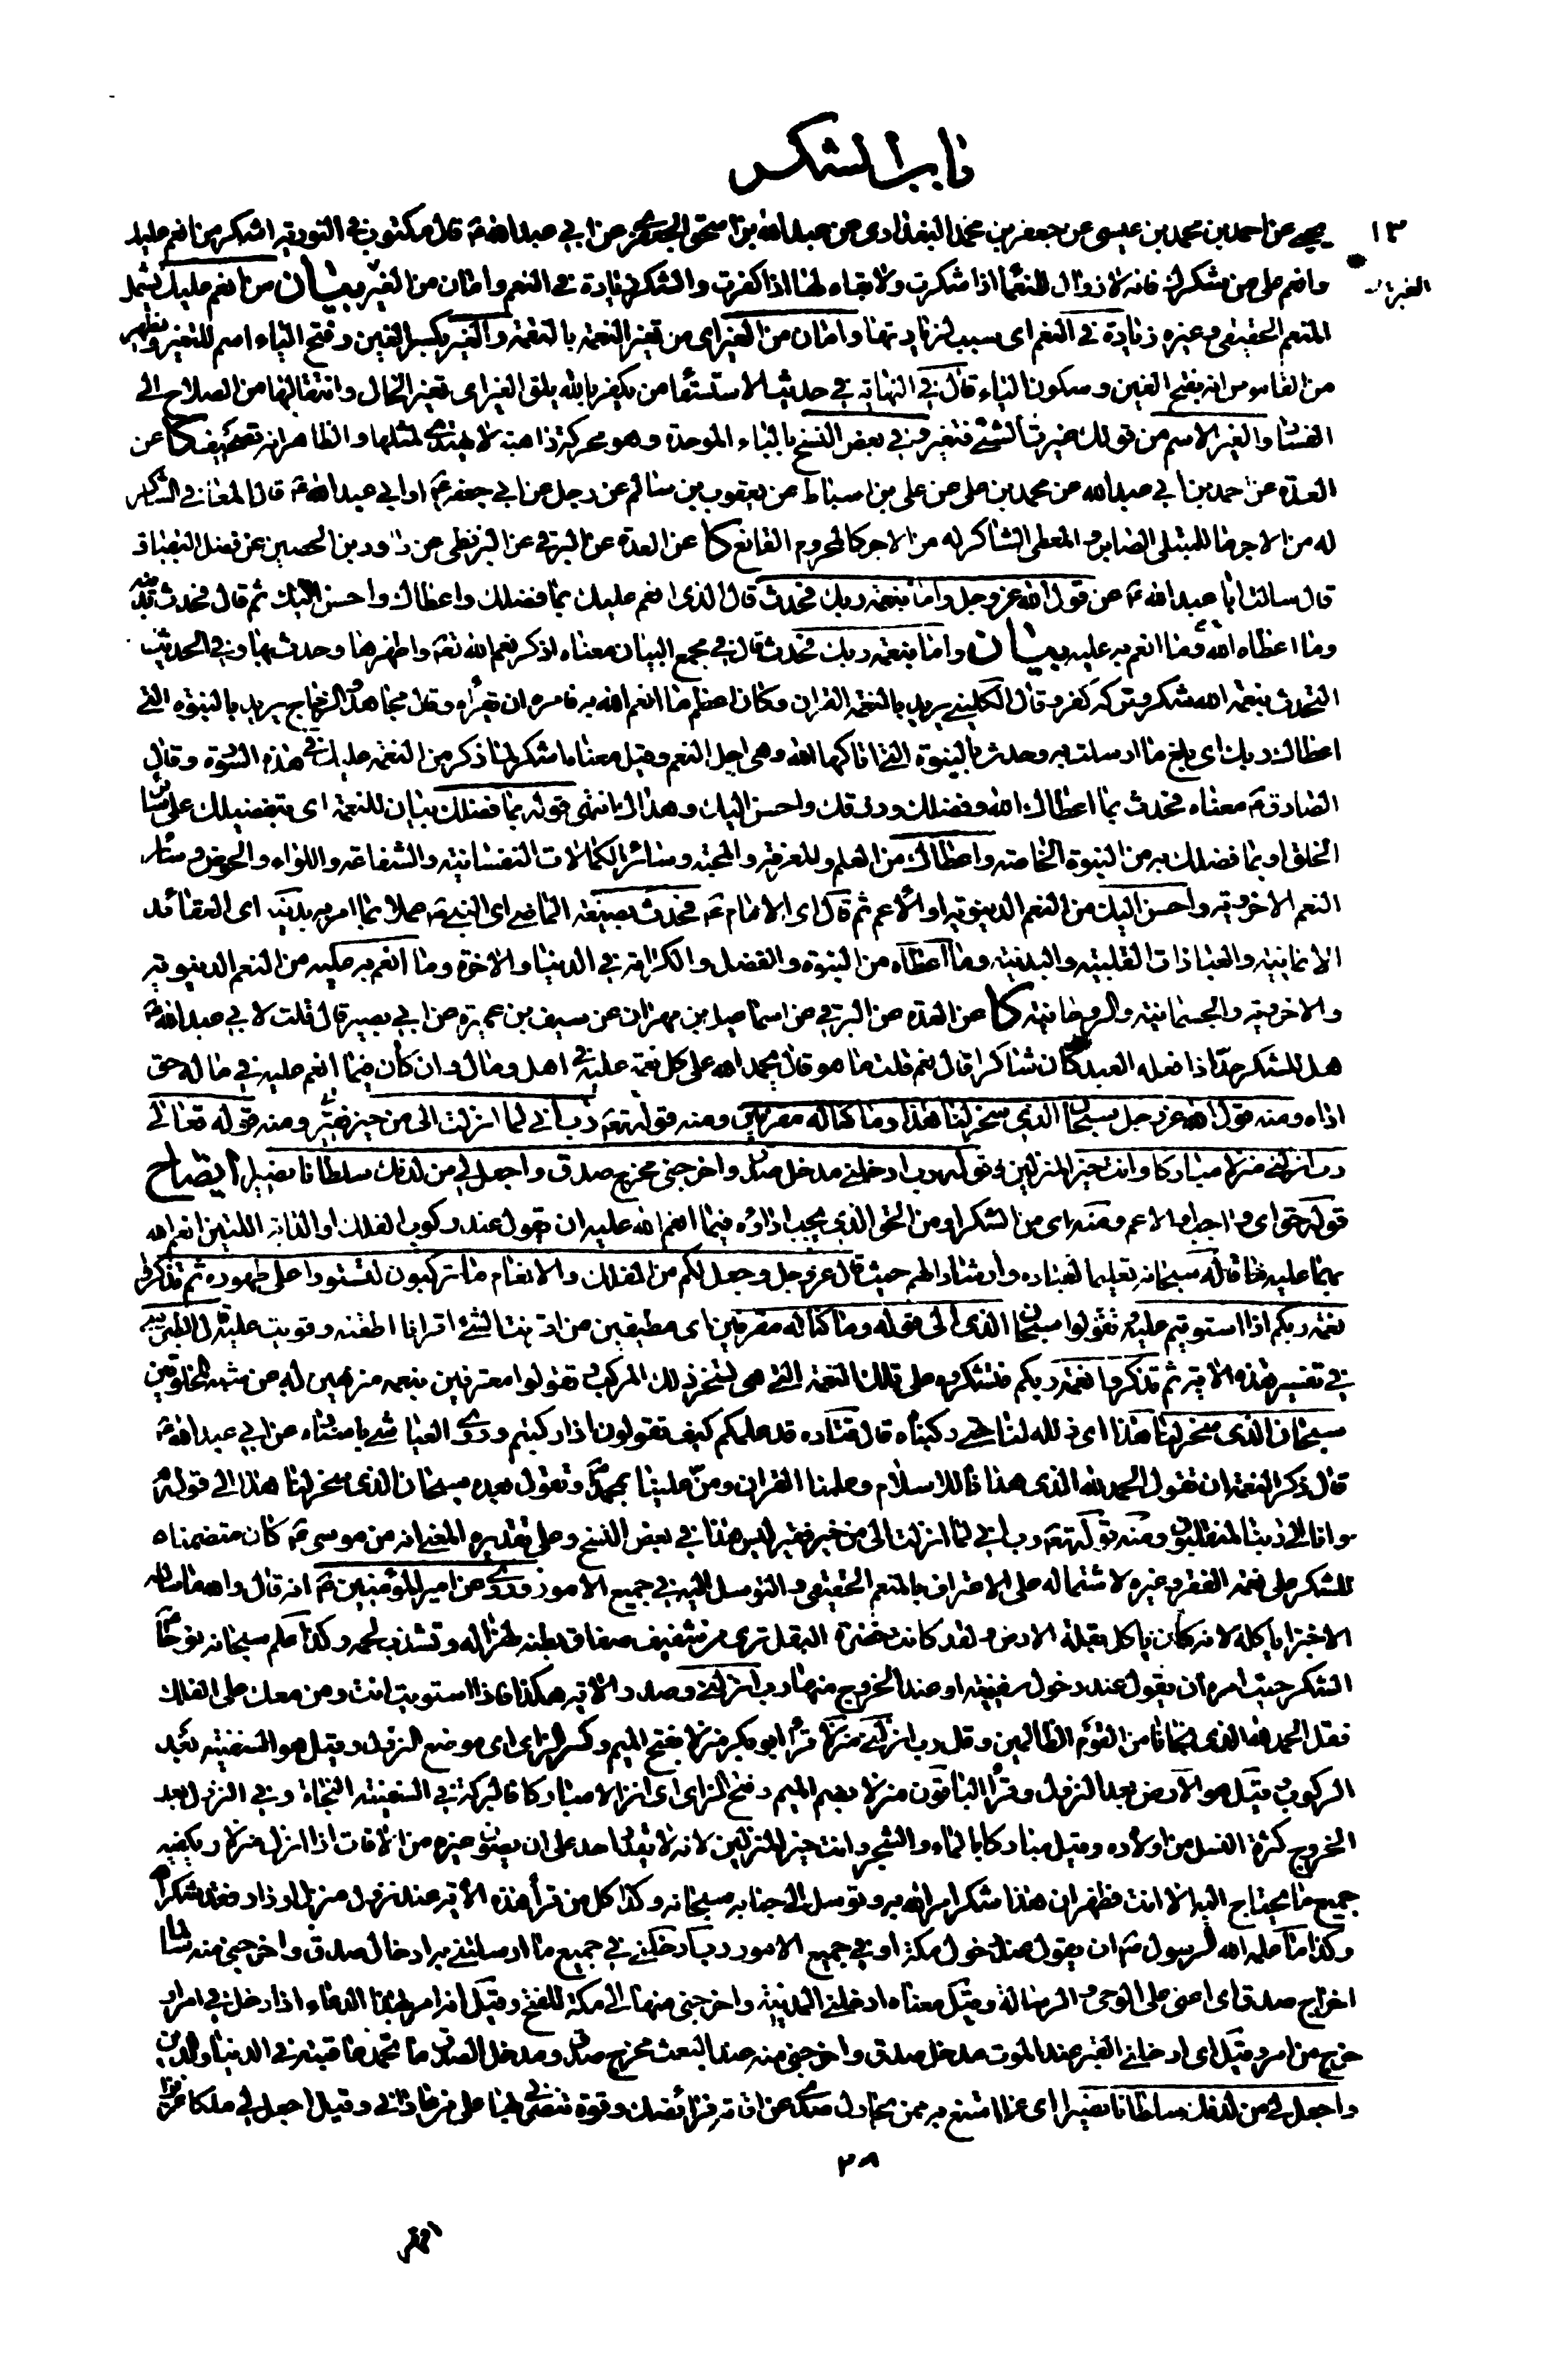 باب الشكر
١٣
يحيى عن احمد بن محمد بن عيسى عن جعفر بن محمد البغدادى عن عبد الله بن اسحق الجعفرى عن ابي عبد الله ع قال مكتوب في التورية اشكر من انعم عليك
وانعم على من شكرك فانه لا زوال للنعماء اذا شكرت ولا بقاء لها اذا كفرت والشكر زيادة في النعم وامان من الغير بيان من انعم عليك يشمل
المنعم الحقيقى وغيره زيادة في النعم اى سبب لزيادتها وامان من الغير اى من تغير النعمة بالنقمة والغير بكسر الغين وفتح الياء اسم للتغير ويظهر
من القاموس انه بفتح الغين وسكون الياء قال في النهاية في حديث الاستسقاء من يكفر بالله يلق الغير اى تغير الحال وانتقالها من الصلاح الى
الفساد والغير الاسم من قولك غيرت الشئ فتغير وفي بعض النسخ بالباء الموحدة وهو محركة داهية لا يهتدى لمثلها والظاهر انه تصحيف كا عن
العدة عن احمد بن ابي عبد الله عن محمد بن على عن على بن اسباط عن يعقوب بن سالم عن رجل عن ابي جعفر ع او ابي عبد الله ع قال المعافى الشاكر
له من الاجر ما للمبتلى الصابر والمعطى الشاكر له من الاجر كالمحروم القانع كا عن العدة عن البرقي عن البزنطى عن داود بن الحصين عن فضل البقباق
قال سالت ابا عبد الله ع عن قول الله عز وجل واما بنعمة ربك فحدث قال الذى انعم عليك بما فضلك واعطاك واحسن اليك ثم قال فحدث بدينه
وما اعطاه الله وما انعم به عليه بيان واما بنعمة ربك فحدث قال في مجمع البيان معناه اذكر نعم الله تعه واظهرها وحدث بها وفي الحديث
التحدث بنعمة الله شكر وتركه كفر وقال الكلبي يريد بالنعمة القران وكان اعظم ما انعم الله به فامره ان يقراه وقال مجاهد والزجاج يريد بالنبوة التي
اعطاك ربك اى بلغ ما ارسلت به وحدث بالنبوة التي اتاكها الله وهى اجل النعم وقيل معناه اشكر لما ذكر من النعمة عليك في هذه السورة وقال
الصادق ع معناه فحدث بما اعطاك الله وفضلك ورزقك واحسن اليك وهداك انتهى قوله بما فضلك بيان للنعمة اى بتفضيلك على سائر
الخلق او بما فضلك به من النبوة الخاصة واعطاك من العلم والمعرفة والمحبة وسائر الكمالات النفسانية والشفاعة واللواء والحوض وسائر
النعم الاخروية واحسن اليك من النعم الدنيوية او الاعم ثم قال اى الامام ع فحدث بصيغة الماضي اى النبي ص عملا بما امر به بدينه اى العقائد
الايمانية والعبادات القلبية والبدنية وما اعطاه من النبوة والفضل والكرامة في الدنيا والاخرة وما انعم به عليه من النعم الدنيوية
والاخروية والجسمانية والروحانية كا عن العدة عن البرقي عن اسماعيل بن مهران عن سيف بن عميرة عن ابي بصير قال قلت لابي عبد الله ع
هل للشكر حد اذا فعله العبد كان شاكرا قال نعم قلت ما هو قال يحمد الله على كل نعمة عليه في اهل ومال وان كان فيما انعم عليه في ماله حق
اداه ومنه قول الله عز وجل سبحان الذي سخر لنا هذا وما كنا له مقرنين ومنه قوله تعه رب اني لما انزلت الى من خير فقير ومنه قوله تعالى
رب انزلني منزلا مباركا وانت خير المنزلين وقوله رب ادخلني مدخل صدق واخرجني مخرج صدق واجعل لي من لدنك سلطانا نصيرا ايضاح
قوله حق اى واجب او الاعم ومنه اى من الشكر او من الحق الذي يجب اداؤه فيما انعم الله عليه ان يقول عند ركوب الفلك او الدابة اللتين انعم الله
بهما عليه ما قاله سبحانه تعليما لعباده وارشادا لهم حيث قال عز وجل وجعل لكم من الفلك والانعام ما تركبون لتستووا على ظهوره ثم تذكروا
نعمة ربكم اذا استويتم عليه وتقولوا سبحان الذى الى قوله وما كنا له مقرنين اى مطيقين من اقرنت الشئ اقرانا اطقته وقويت عليه قال الطبرسي
في تفسير هذه الاية ثم تذكروا نعمة ربكم فتشكروه على تلك النعمة التي هى تسخير ذلك المركب وتقولوا معترفين بنعمه منزهين له عن شبه المخلوقين
سبحان الذى سخر لنا هذا اى ذلله لنا حتى ركبناه قال قتاده قد علمكم كيف تقولون اذا ركبتم وروى العياشي باسناده عن ابي عبد الله ع
قال ذكر النعمة ان تقول الحمد لله الذى هدانا للاسلام وعلمنا القران ومن علينا بمحمد ص وتقول بعده سبحان الذى سخر لنا هذا الى قوله
وانا الى ربنا لمنقلبون ومنه قوله تعه رب اني لما انزلت الى من خير فقير ليس هذا في بعض النسخ وعلى تقديره المعنى انه من موسى ع كان متضمنا
للشكر على نعمة الفقر وغيره لاشتماله على الاعتراف بالمنعم الحقيقى والتوسل اليه في جميع الامور وروى عن امير المؤمنين ع انه قال والله ما ساله
الا خبزا ياكله لانه كان ياكل بقلة الارض ولقد كانت خضرة البقل ترى من شفيف صفاق بطنه لهزاله وتشذب لحمه وكذا علم سبحانه نوحا
الشكر حيث امره ان يقول عند دخول سفينته او عند الخروج منها رب انزلني وصدر الاية هكذا فاذا استويت انت ومن معك على الفلك
فقل الحمد لله الذى نجانا من القوم الظالمين وقل رب انزلني منزلا قرأ ابو بكر منزلا بفتح الميم وكسر الزاى اى موضع النزول وقيل هو السفينة بعد
الركوب وقيل هو الارض بعد النزول وقرأ الباقون منزلا بضم الميم وفتح الزاى اى انزالا مباركا فالبركة في السفينة النجاة وفي النزول بعد
الخروج كثرة النسل من اولاده وقيل مباركا بالماء والشجر وانت خير المنزلين لانه لا يقدر احد على ان يصون غيره من الافات اذا انزل منزلا ويكفيه
جميع ما يحتاج اليه الا انت فظهر ان هذا شكر امر الله به وتوسل الى جنابه سبحانه وكذا كل من قرأ هذه الاية عند نزول منزل او دار فقد شكر الله
وكذا ما علمه الله الرسول ص ان يقول عند دخول مكة او في جميع الامور رب ادخلني في جميع ما ارسلتني به ادخال صدق واخرجني منه سالما
اخراج صدق اى اعنى على الوحى والرسالة وقيل معناه ادخلني المدينة واخرجني منها الى مكة للفتح وقيل انه امر بهذا الدعاء اذا دخل في امر او
خرج من امر وقيل اى ادخلني القبر عند الموت مدخل صدق واخرجني منه عند البعث مخرج صدق ومدخل الصدق ما تحمد عاقبته في الدنيا والدين
واجعل لي من لدنك سلطانا نصيرا اى عزا امتنع به ممن يحاول صدى عن اقامة فرائضك وقوة تنصرني بها على من عاداني وقيل اجعل لي ملكا عزيزا
٢٨